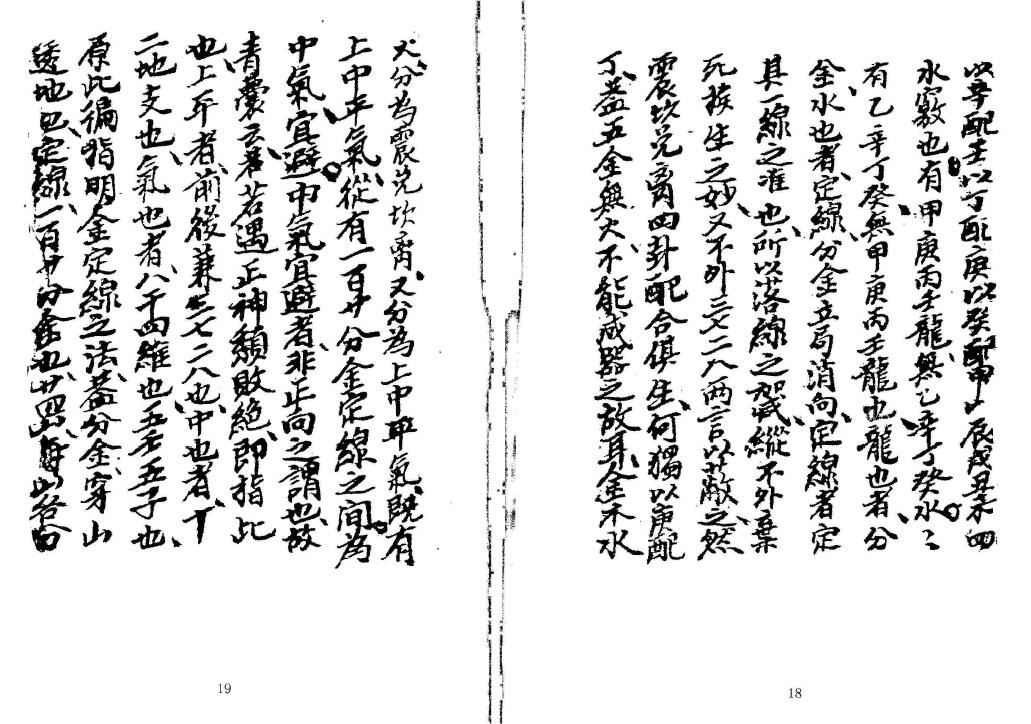 以辛配壬以丁配庚以癸配甲以辰戌丑未四
水竅也有甲庚丙壬龍無乙辛丁癸水
有乙辛丁癸無甲庚丙壬龍也龍也者分
金水也者定線分金立局消向定線者定
具一線之准也所以落線之吉凶縱不外棄
死挨生之妙又不外三七二八两言以蔽之然
震坎兑离四卦配合俱生何獨以庚配
丁蓋五金無火不能成器之故耳金木水
火分為震兑坎离又分為上中平氣既有
上中平氣從有一百廿分金定線之間為
中氣宜避中氣宜避者非正向之謂也故
青囊云若遇正神顛敗絶即指此
也上平者前後兼三七二八也中也者十
二地支也氣也者八干四維也五壬五子也
原此徧指明金定線之法蓋分金穿山
透地也定線一百廿分金也廿四山各白
18
19